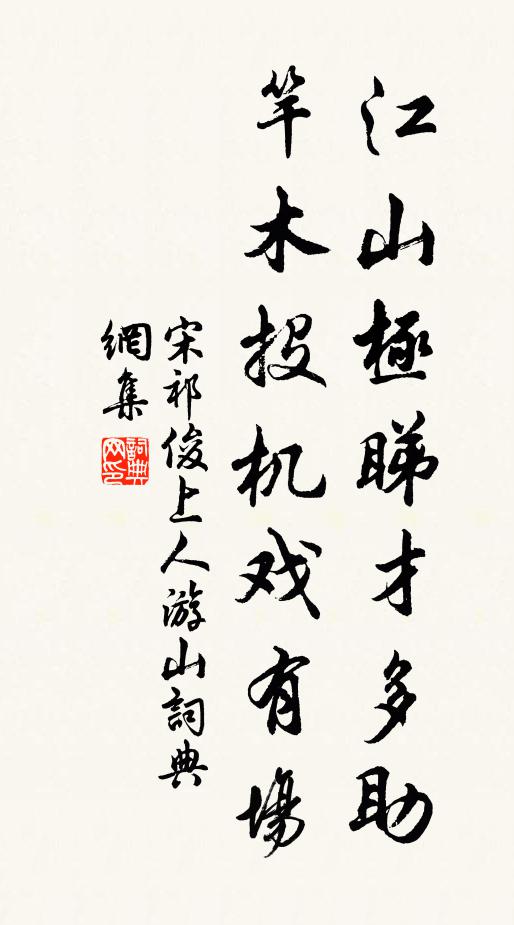 江山極睇才多助
竿木投机戏有場
宋祁俊上人游山詞典
網集
詞典網印